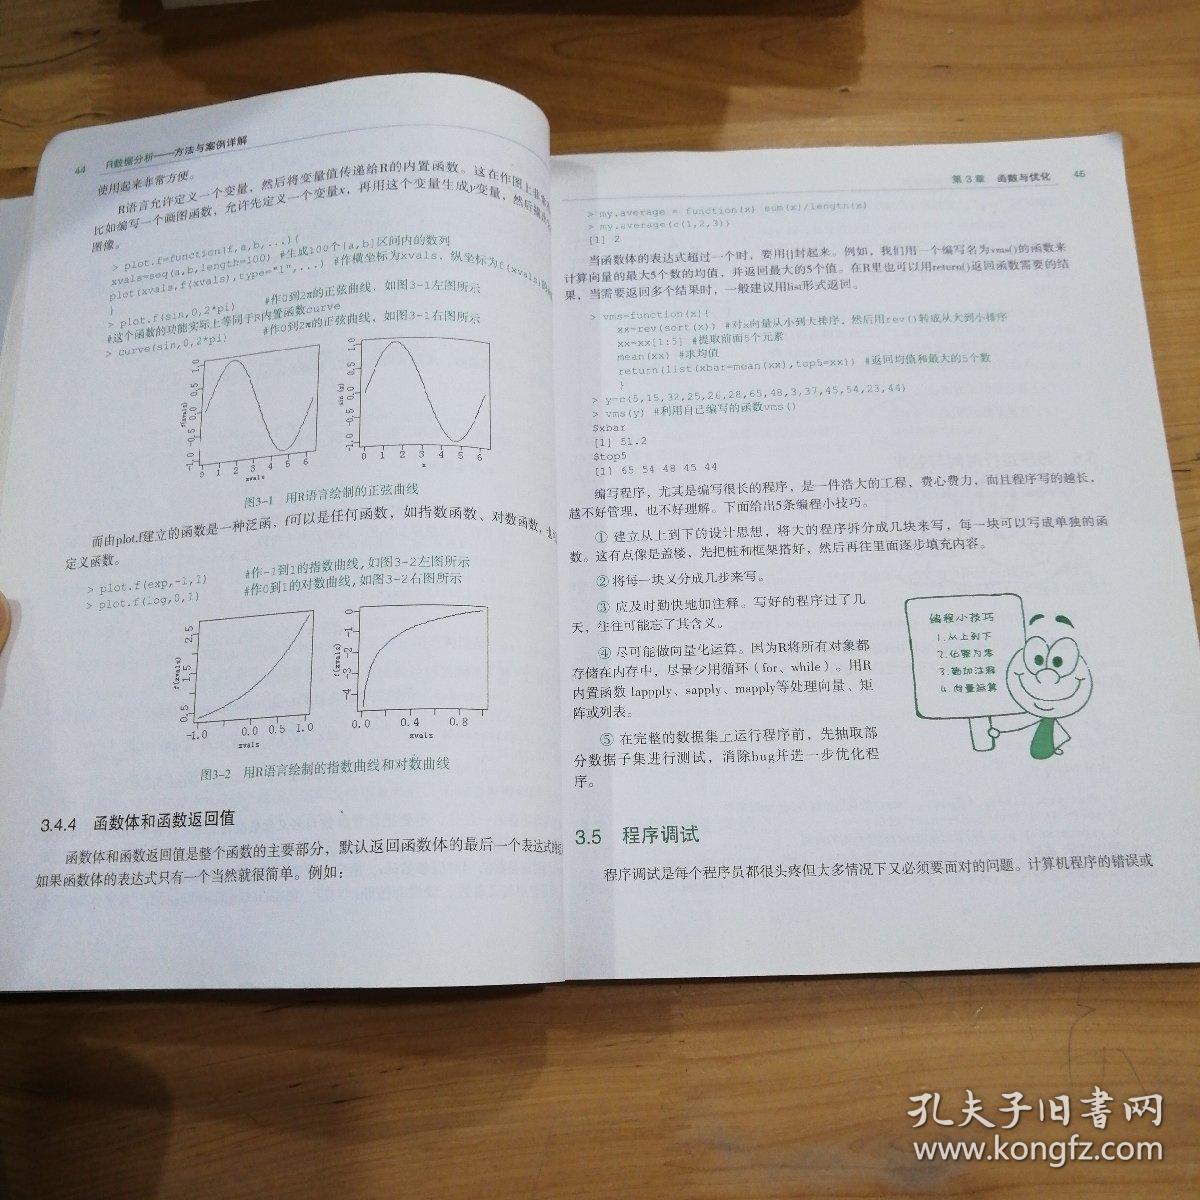 44 R数据分析——方法与案例详解
使用起来非常方便。
R语言允许定义一个变量，然后将变量值传递给R的内置函数。这在作图上非常
比如编写一个画图函数，允许先定义一个变量x，再用这个变量生成y变量，然后
图像。
> plot.f=function(f,a,b,...){
xvals=seq(a,b,length=100) #生成100个[a,b]区间内的数列
plot(xvals,f(xvals),type="l",...) #作横坐标为xvals，纵坐标为f(xvals)
}
> plot.f(sin,0,2*pi) #作0到2π的正弦曲线，如图3-1左图所示
#这个函数的功能实际上等同于R内置函数curve
> curve(sin,0,2*pi) #作0到2π的正弦曲线，如图3-1右图所示
f(xvals)
-1.0 -0.5 0.0 0.5 1.0
0 1 2 3 4 5 6
xvals
sin (x)
-1.0 -0.5 0.0 0.5 1.0
0 1 2 3 4 5 6
x
图3-1 用R语言绘制的正弦曲线
而由plot.f建立的函数是一种泛函，f可以是任何函数，如指数函数、对数函数，
定义函数。
> plot.f(exp,-1,1) #作-1到1的指数曲线,如图3-2左图所示
> plot.f(log,0,1) #作0到1的对数曲线,如图3-2右图所示
f(xvals)
0.5 1.5 2.5
-1.0 0.0 0.5 1.0
xvals
f(xvals)
-4 -3 -2 -1 0
0.0 0.4 0.8
xvals
图3-2 用R语言绘制的指数曲线和对数曲线
3.4.4 函数体和函数返回值
函数体和函数返回值是整个函数的主要部分，默认返回函数体的最后一个表达式的
如果函数体的表达式只有一个当然就很简单。例如：
第 3 章 函数与优化 45
> my.average = function(x) sum(x)/length(x)
> my.average(c(1,2,3))
[1] 2
当函数体的表达式超过一个时，要用{}封起来。例如，我们用一个编写名为vms()的函数来
计算向量的最大5个数的均值，并返回最大的5个值。在R里也可以用return()返回函数需要的结
果，当需要返回多个结果时，一般建议用list形式返回。
> vms=function(x){
xx=rev(sort(x)) #对x向量从小到大排序，然后用rev()转成从大到小排序
xx=xx[1:5] #提取前面5个元素
mean(xx) #求均值
return(list(xbar=mean(xx),top5=xx)) #返回均值和最大的5个数
}
> y=c(5,15,32,25,26,28,65,48,3,37,45,54,23,44)
> vms(y) #利用自己编写的函数vms()
$xbar
[1] 51.2
$top5
[1] 65 54 48 45 44
编写程序，尤其是编写很长的程序，是一件浩大的工程，费心费力，而且程序写的越长，
越不好管理，也不好理解。下面给出5条编程小技巧。
① 建立从上到下的设计思想，将大的程序拆分成几块来写，每一块可以写成单独的函
数。这有点像是盖楼，先把桩和框架搭好，然后再往里面逐步填充内容。
② 将每一块又分成几步来写。
③ 应及时勤快地加注释。写好的程序过了几
天，往往可能忘了其含义。
④ 尽可能做向量化运算。因为R将所有对象都
存储在内存中，尽量少用循环（for、while）。用R
内置函数 lappply、sapply、mapply等处理向量、矩
阵或列表。
⑤ 在完整的数据集上运行程序前，先抽取部
分数据子集进行测试，消除bug并进一步优化程
序。
编程小技巧
1.从上到下
2.化整为零
3.勤加注释
4.向量运算
3.5 程序调试
程序调试是每个程序员都很头疼但大多情况下又必须要面对的问题。计算机程序的错误或
孔夫子旧书网
www.kongfz.com